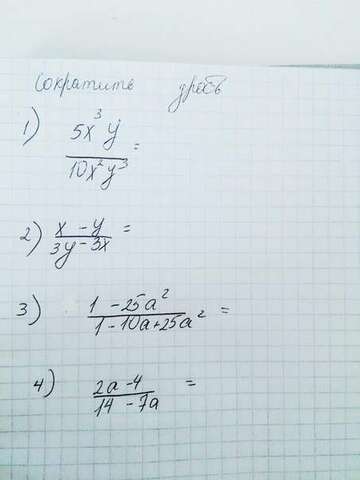 Сократить дробь
1) 5x³y / 10x²y³ =
2) x - y / 3y - 3x =
3) 1 - 25a² / 1 - 10a + 25a² =
4) 2a - 4 / 14 - 7a =